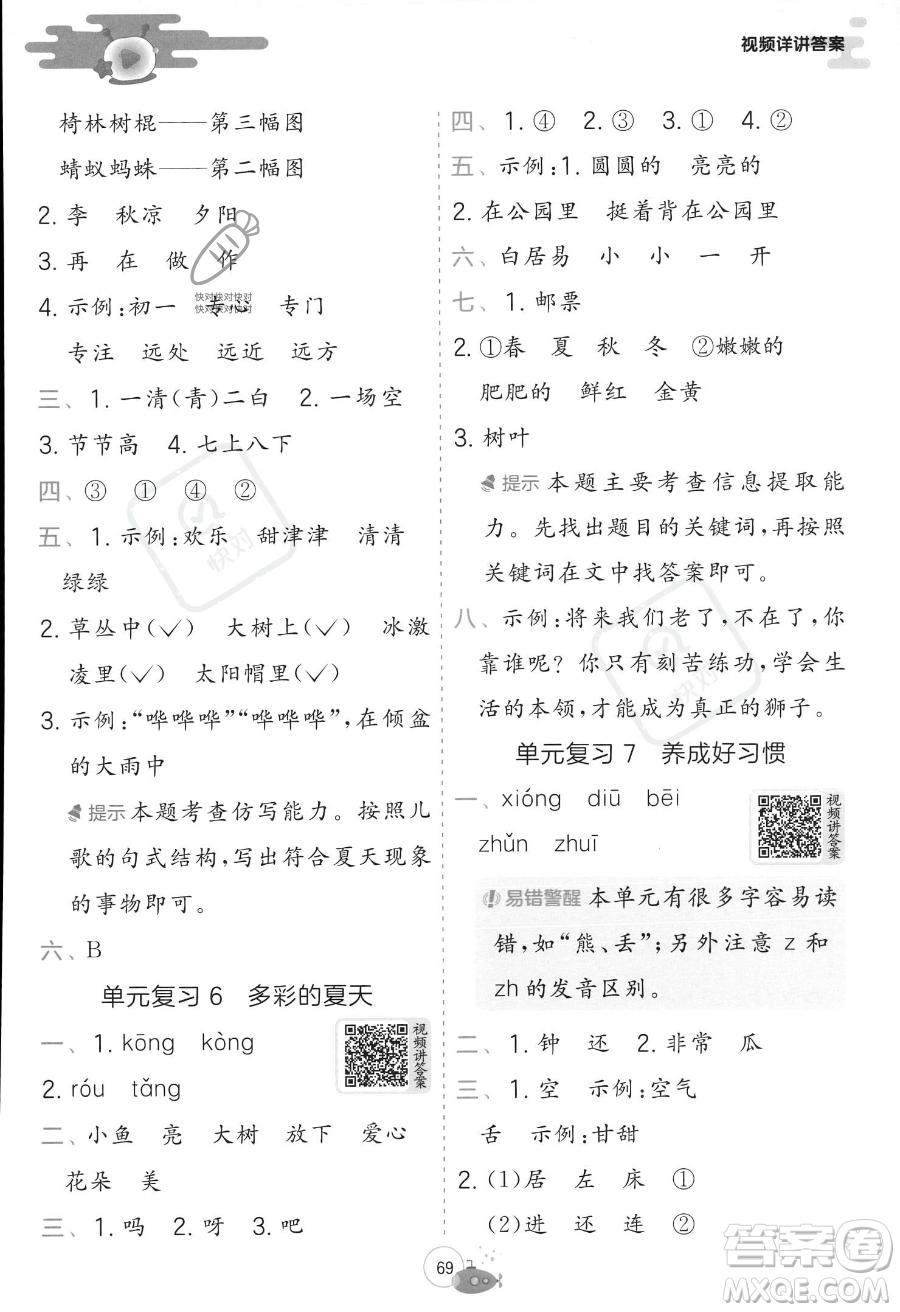 视频详讲答案
椅林树棍——第三幅图
蜻蚁蚂蛛——第二幅图
2. 李 秋凉 夕阳
3. 再 在 做 作
4. 示例:初一 专心 专门
专注 远处 远近 远方
三、1. 一清(青)二白 2. 一场空
3. 节节高 4. 七上八下
四、③ ① ④ ②
五、1. 示例:欢乐 甜津津 清清
绿绿
2. 草丛中(✓) 大树上(✓) 冰激
凌里(✓) 太阳帽里(✓)
3. 示例:“哗哗哗”“哗哗哗”,在倾盆
的大雨中
提示 本题考查仿写能力。按照儿
歌的句式结构,写出符合夏天现象
的事物即可。
六、B
单元复习 6 多彩的夏天
一、1. kōng kòng
2. róu tǎng
视频讲答案
二、小鱼 亮 大树 放下 爱心
花朵 美
三、1. 吗 2. 呀 3. 吧
四、1. ④ 2. ③ 3. ① 4. ②
五、示例:1. 圆圆的 亮亮的
2. 在公园里 挺着背在公园里
六、白居易 小 小 一 开
七、1. 邮票
2. ①春 夏 秋 冬 ②嫩嫩的
肥肥的 鲜红 金黄
3. 树叶
提示 本题主要考查信息提取能
力。先找出题目的关键词,再按照
关键词在文中找答案即可。
八、示例:将来我们老了,不在了,你
靠谁呢?你只有刻苦练功,学会生
活的本领,才能成为真正的狮子。
单元复习 7 养成好习惯
一、xióng diū bēi
zhǔn zhuī
视频讲答案
易错警醒 本单元有很多字容易读
错,如“熊、丢”;另外注意 z 和
zh 的发音区别。
二、1. 钟 还 2. 非常 瓜
三、1. 空 示例:空气
舌 示例:甘甜
2. (1)居 左 床 ①
(2)进 还 连 ②
69
快对快对快对
快对快对快对
快对
快对
答案圈
MXQE.COM